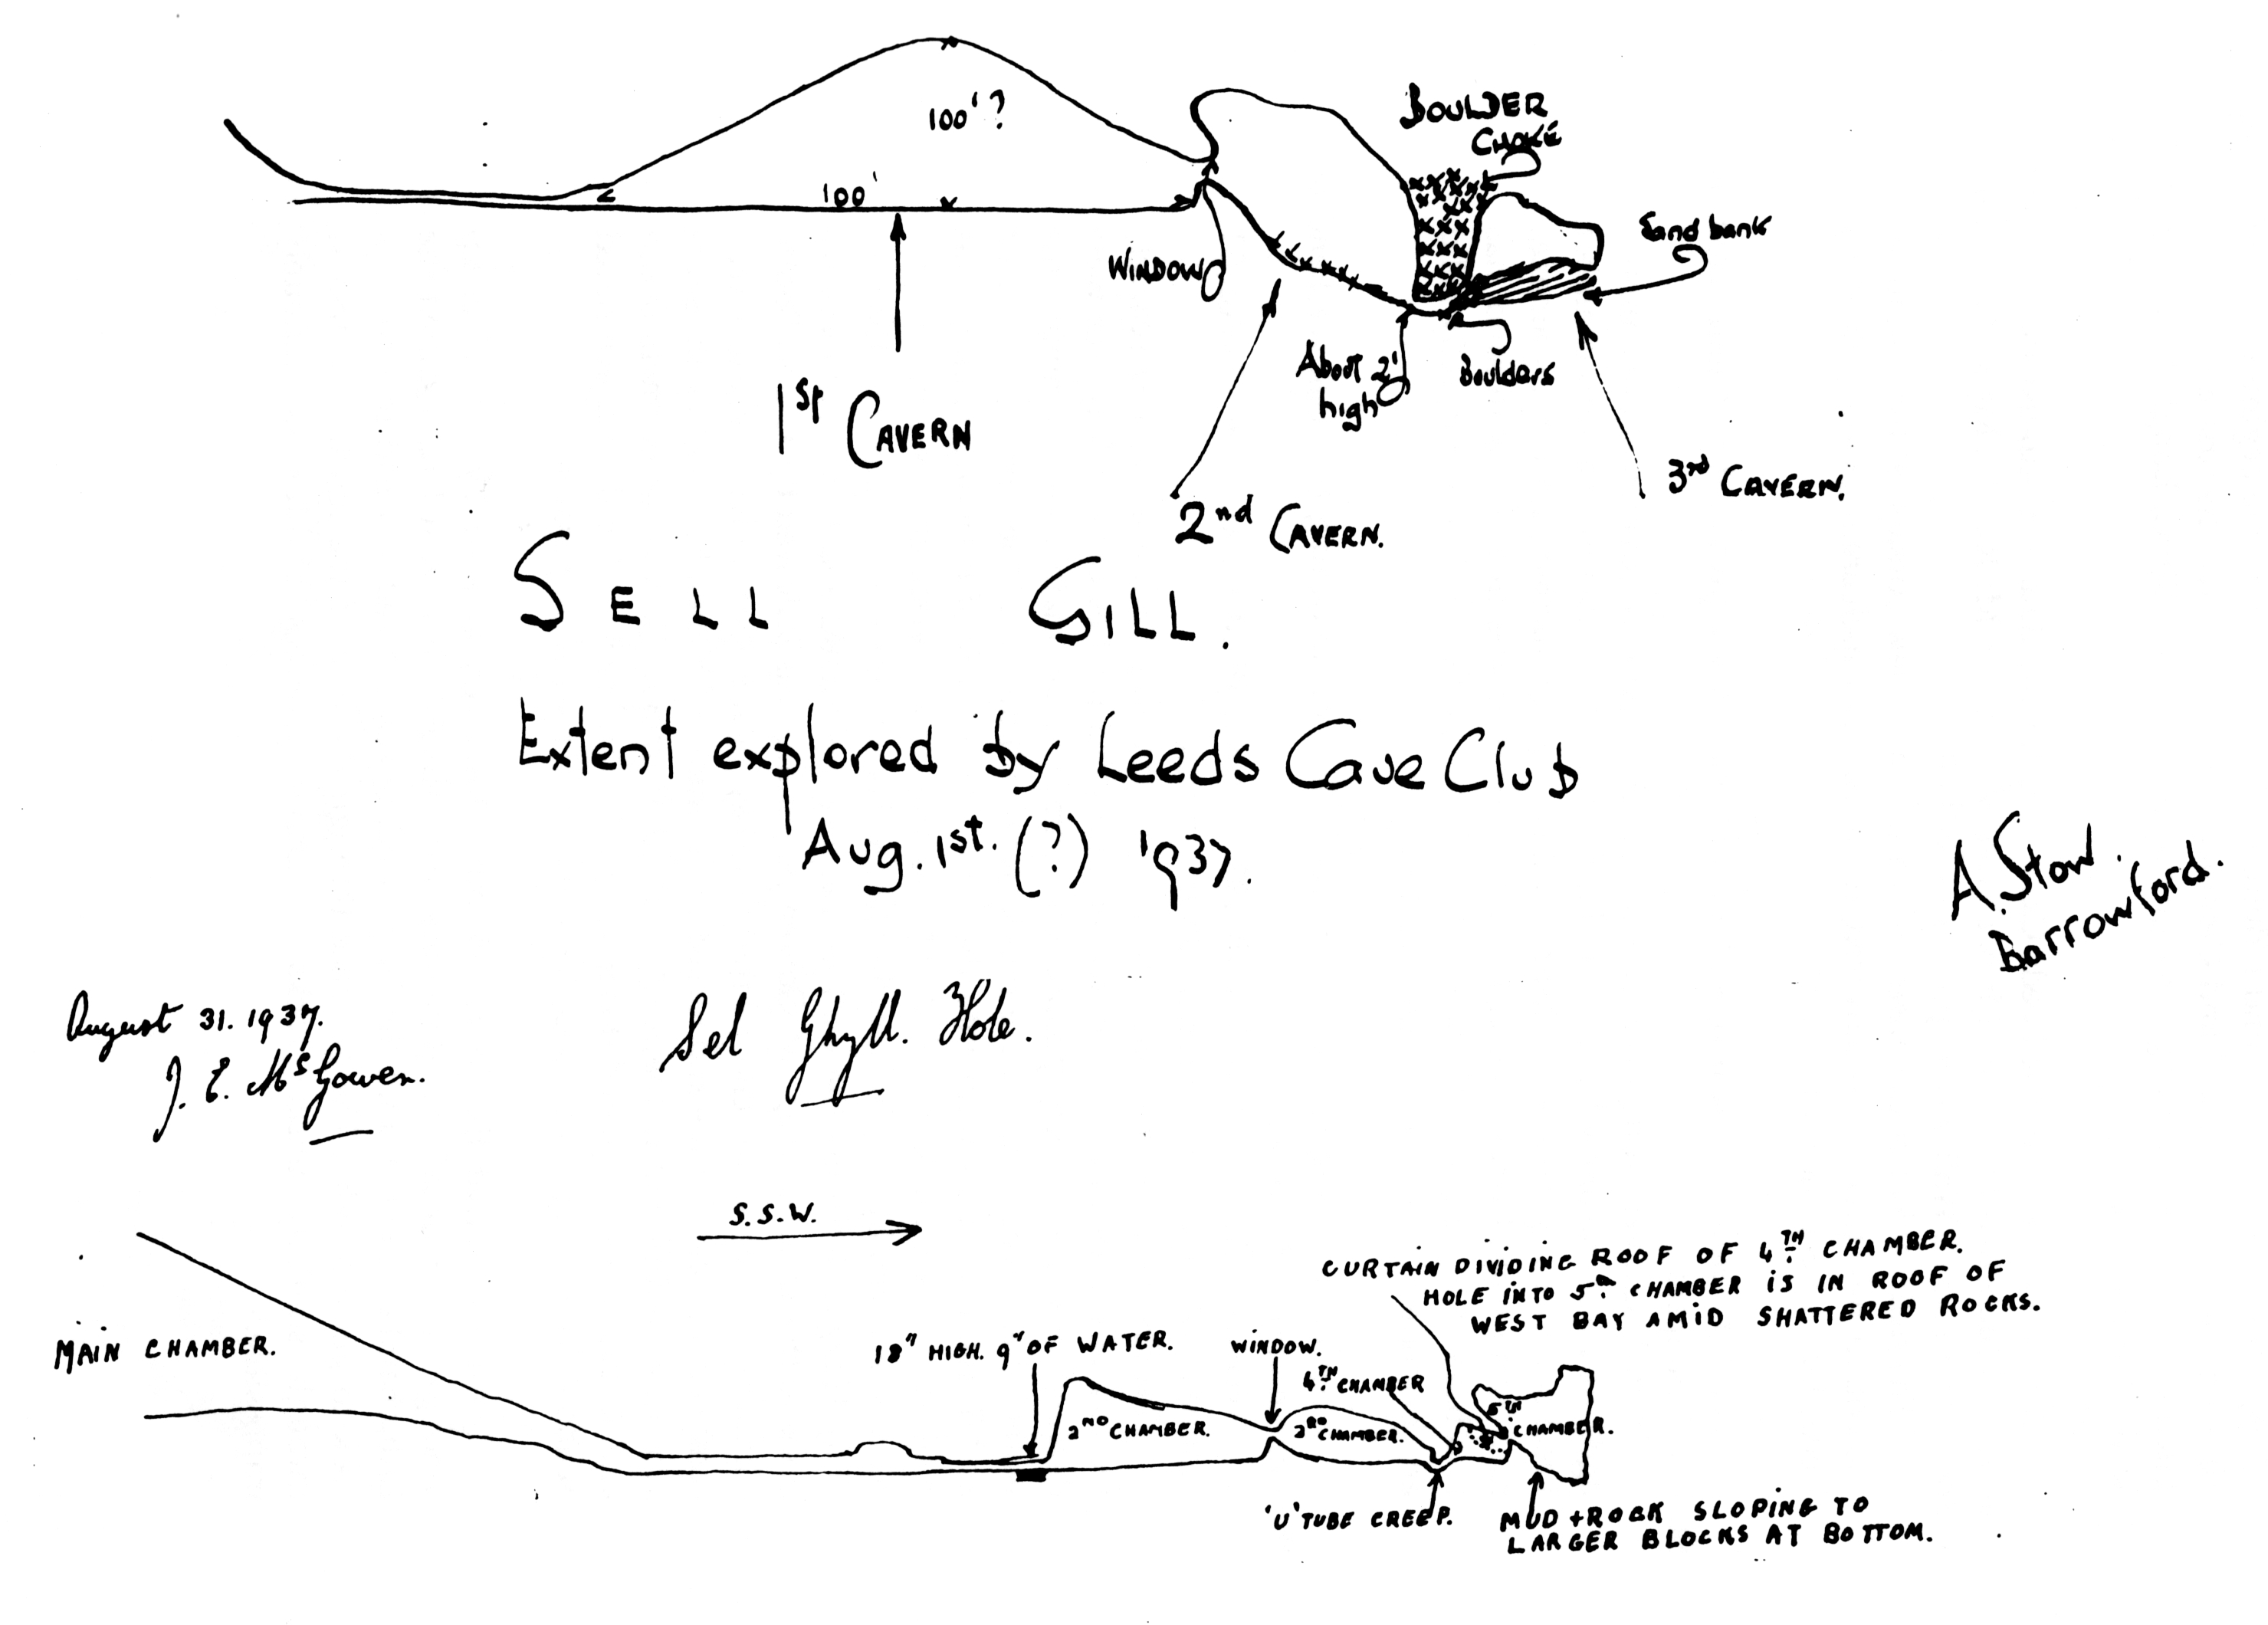 100'?
100'
BOULDER
CHOKE
Sand bank
WINDOW
About 2'
high
Boulders
1st CAVERN
2nd CAVERN.
3rd CAVERN.
SELL GILL.
Extent explored by Leeds Cave Club
Aug. 1st. (?) 1937.
A. Stow.
Barrowford.
August 31. 1937.
J. E. McGowen.
Sel Ghyll. Hole.
S.S.W.
CURTAIN DIVIDING ROOF OF 4TH CHAMBER.
HOLE INTO 5th CHAMBER IS IN ROOF OF
WEST BAY AMID SHATTERED ROCKS.
MAIN CHAMBER.
18" HIGH. 9" OF WATER.
WINDOW.
4TH CHAMBER
2ND CHAMBER.
3RD CHAMBER.
5TH
CHAMBER.
'U' TUBE CREEP.
MUD + ROCK SLOPING TO
LARGER BLOCKS AT BOTTOM.